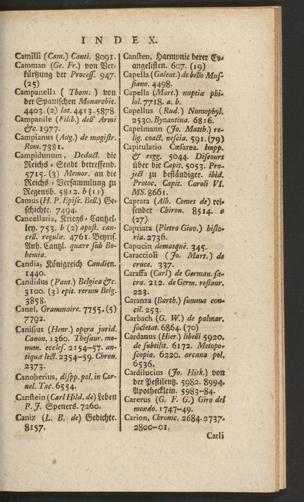 INDEX.
Camilli (Cam.) Canti. 8091.
Camoman (Ge. Fr.) von Ver-
kürtzung der Process. 947.
(25)
Campanella (Thom.) von
der Spanischen Monarchie.
4403. (2) lat. 4413. 5878
Campanile (Filib.) dell' Armi
&c. 1977.
Campianus (Aug.) de magistr.
Rom. 7381.
Campidunum, Deduct. die
Reichs-Stadt betreffend.
5715. (3) Memor. an die
Reichs-Versammlung zu
Regensb. 5812. b (11)
Camus (H. P. Episc. Bell.) Ge-
schichte. 7494.
Cancellaria, Kriegs-Cantzel-
ley. 753. b (2) apost. can-
cell. regulæ. 4761. Beyris.
Anh. Cantzl. quare sub Bo-
hemia.
Candia, Königreich Candien.
1440.
Candidus (Pant.) Belgica &c.
3100. (3) epit. rerum Belg.
3858.
Canel, Grammaire. 7755. (5)
7792.
Canisius (Henr.) opera jurid.
Canon. 1260. Thesaur. mo-
num. eccles. 2154-57. an-
tiquæ lect. 2354-59. Chron.
2373.
Canoherius, dissp. pol. in Cor-
nel. Tac. 6554.
Canstein (Carl Hild. de) Leben
P. J. Speners. 7260.
Caniz (L. B. de) Gedichte.
8157.
Cansten, Harmonie derer Ev-
angelisten. 607. (19)
Capella (Galeat.) de bello Mus-
siano. 4498.
Capella (Mart.) nuptiæ phi-
lol. 7718. a. b.
Capellus (Rud.) Numophyl.
2530. Byzantina. 6816.
Capelmann (Jo. Matth.) re-
lig. coact. nescia. 591. (79)
Capitulatio Cæsarea. Impp.
& regg. 5044. Discours
über die Capit. 5053. Pro-
ject zu beständiger. ibid.
Protoc. Capit. Caroli VI.
MS. 8661.
Caprara (Alb. Comes de) rei-
sender Chiron. 8514. a
(27)
Capriata (Pietro Giov.) histo-
ria. 2736.
Capucin demasqué. 345.
Caraccioli (Jo. Mart.) de
cruce. 337.
Caraffa (Carl) de German. sa-
cra. 212. de Germ. restaur.
223.
Caranza (Barth.) summa con-
cil. 253.
Carbach (G. W.) de palmar.
societat. 6864. (70)
Cardanus (Hier.) libelli 5920.
de subtilit. 6172. Metopo-
scopia. 6220. arcana pol.
6536.
Cardilucius (Jo. Hisk.) von
der Pestilentz. 5982. 8994.
Apothecklein. 5983-84.
Carerus (G. F. G.) Giro del
mondo. 1747-49.
Carion, Chronic. 2684. 2737.
2800-01.
Carli